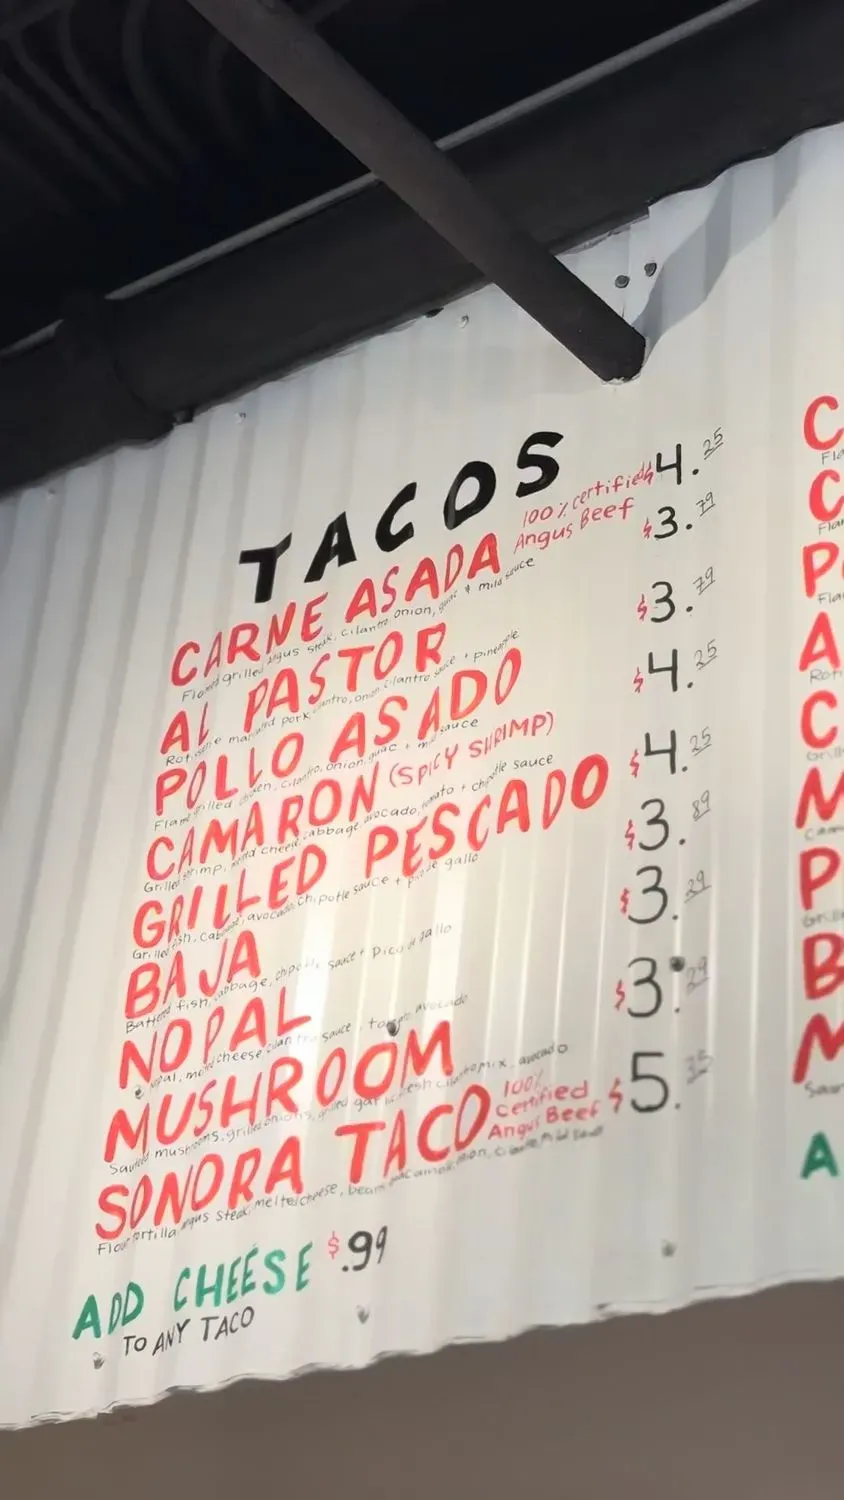 TACOS
CARNE ASADA 100% certified Angus Beef $4.25
Flame grilled angus steak, cilantro, onion, guac & mild sauce
AL PASTOR $3.79
marinated pork, cilantro, onion, cilantro sauce + pineapple
POLLO ASADO $3.79
Flame grilled chicken, cilantro, onion, guac + mild sauce
CAMARON (SPICY SHRIMP) $4.25
Grilled shrimp, melted cheese, cabbage, avocado, tomato + chipotle sauce
GRILLED PESCADO $4.25
Grilled fish, cabbage, avocado, chipotle sauce + pico de gallo
BAJA $3.89
Battered fish, cabbage, chipotle sauce + Pico de gallo
NOPAL $3.29
Nopal, melted cheese, cilantro sauce, tomato, avocado
MUSHROOM $3.29
Sautéed mushrooms, grilled onions, grilled garlic, fresh cilantro mix, avocado
SONORA TACO 100% Certified Angus Beef $5.35
Flour tortilla, angus steak, melted cheese, beans, guacamole, onion, cilantro, mild sauce
ADD CHEESE $.99
TO ANY TACO